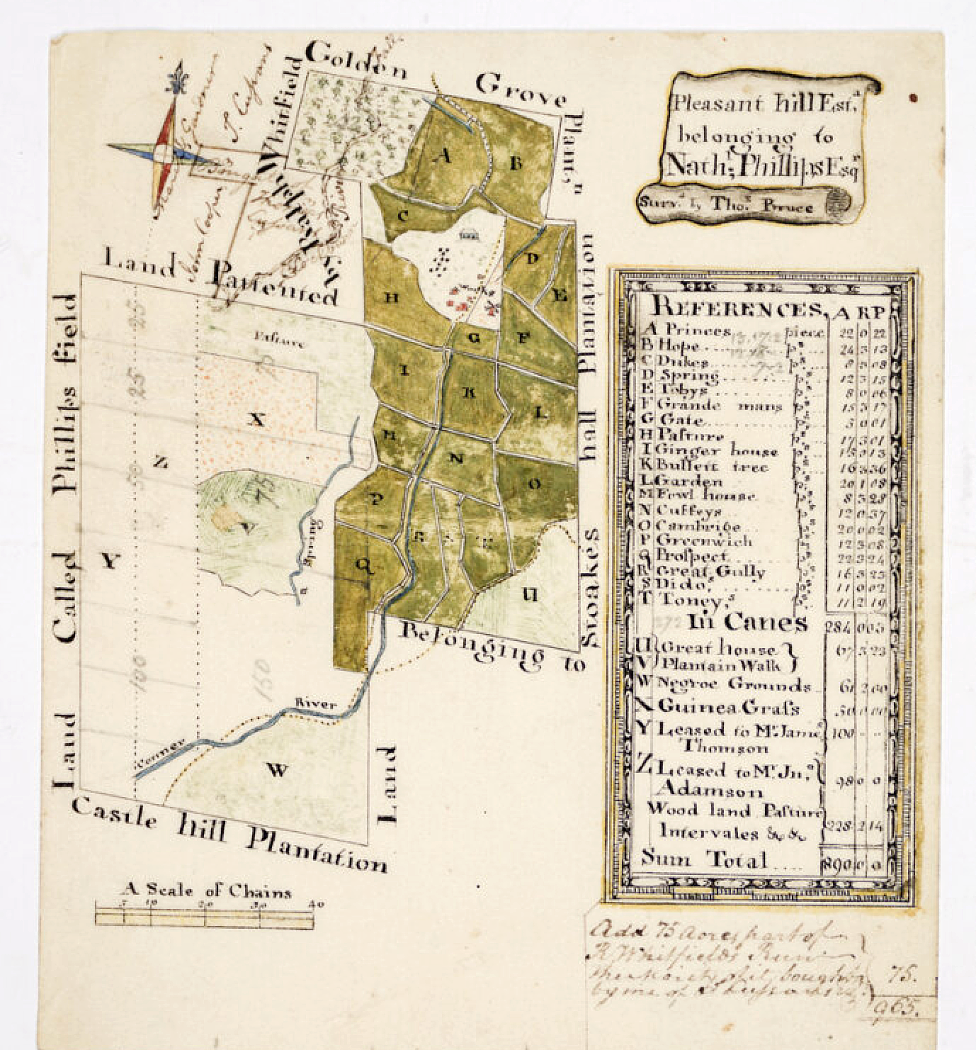 Pleasant hill Est.
belonging to
Nath; Phillips Esq
Surv.d by Tho.s Bruce
Golden Grove Plant.n
by Ralph Whitfield
Land Pattented
Land Called Phillips field
Stoakes hall Plantation
Land Belonging to
Castle hill Plantation
A
B
C
Works
D
E
H
G
F
Pasture
I
K
L
X
M
N
Z
O
P
Spring Gut
R
Q
Y
U
River
Conner
W
25
25
75
50
75
100
150
A Scale of Chains
5 10 20 30 40
REFERENCES, A R P
A Princes piece 22 0 22
B Hope 24 3 13
C Dukes 8 3 08
D Spring 12 3 15
E Tobys 8 0 06
F Grande mans 15 3 17
G Gate 3 0 01
H Pasture 17 3 01
I Ginger house 15 0 13
K Bussett tree 16 3 36
L Garden 20 1 08
M Fowl house 8 3 28
N Cuffeys 12 0 37
O Cambrige 20 0 02
P Greenwich 12 3 08
Q Prospect 22 3 24
R Great Gully 16 3 23
S Dido, 11 0 02
T Toney,s 11 2 19
In Canes 284 0 03
U Great house
V Plantain Walk 67 3 23
W Negroe Grounds 61 2 00
X Guinea Grass 50 0 00
Y Leased to Mr. Jame
Thomson 100
Z Leased to Mr. Jn.o
Adamson 98 0 0
Wood land Pasture
Intervales & & 228 2 14
Sum Total 890 0 0
Add 75 Acres part of
R Whitfields Run
the Moiety of it bought
by me of
75.
965.